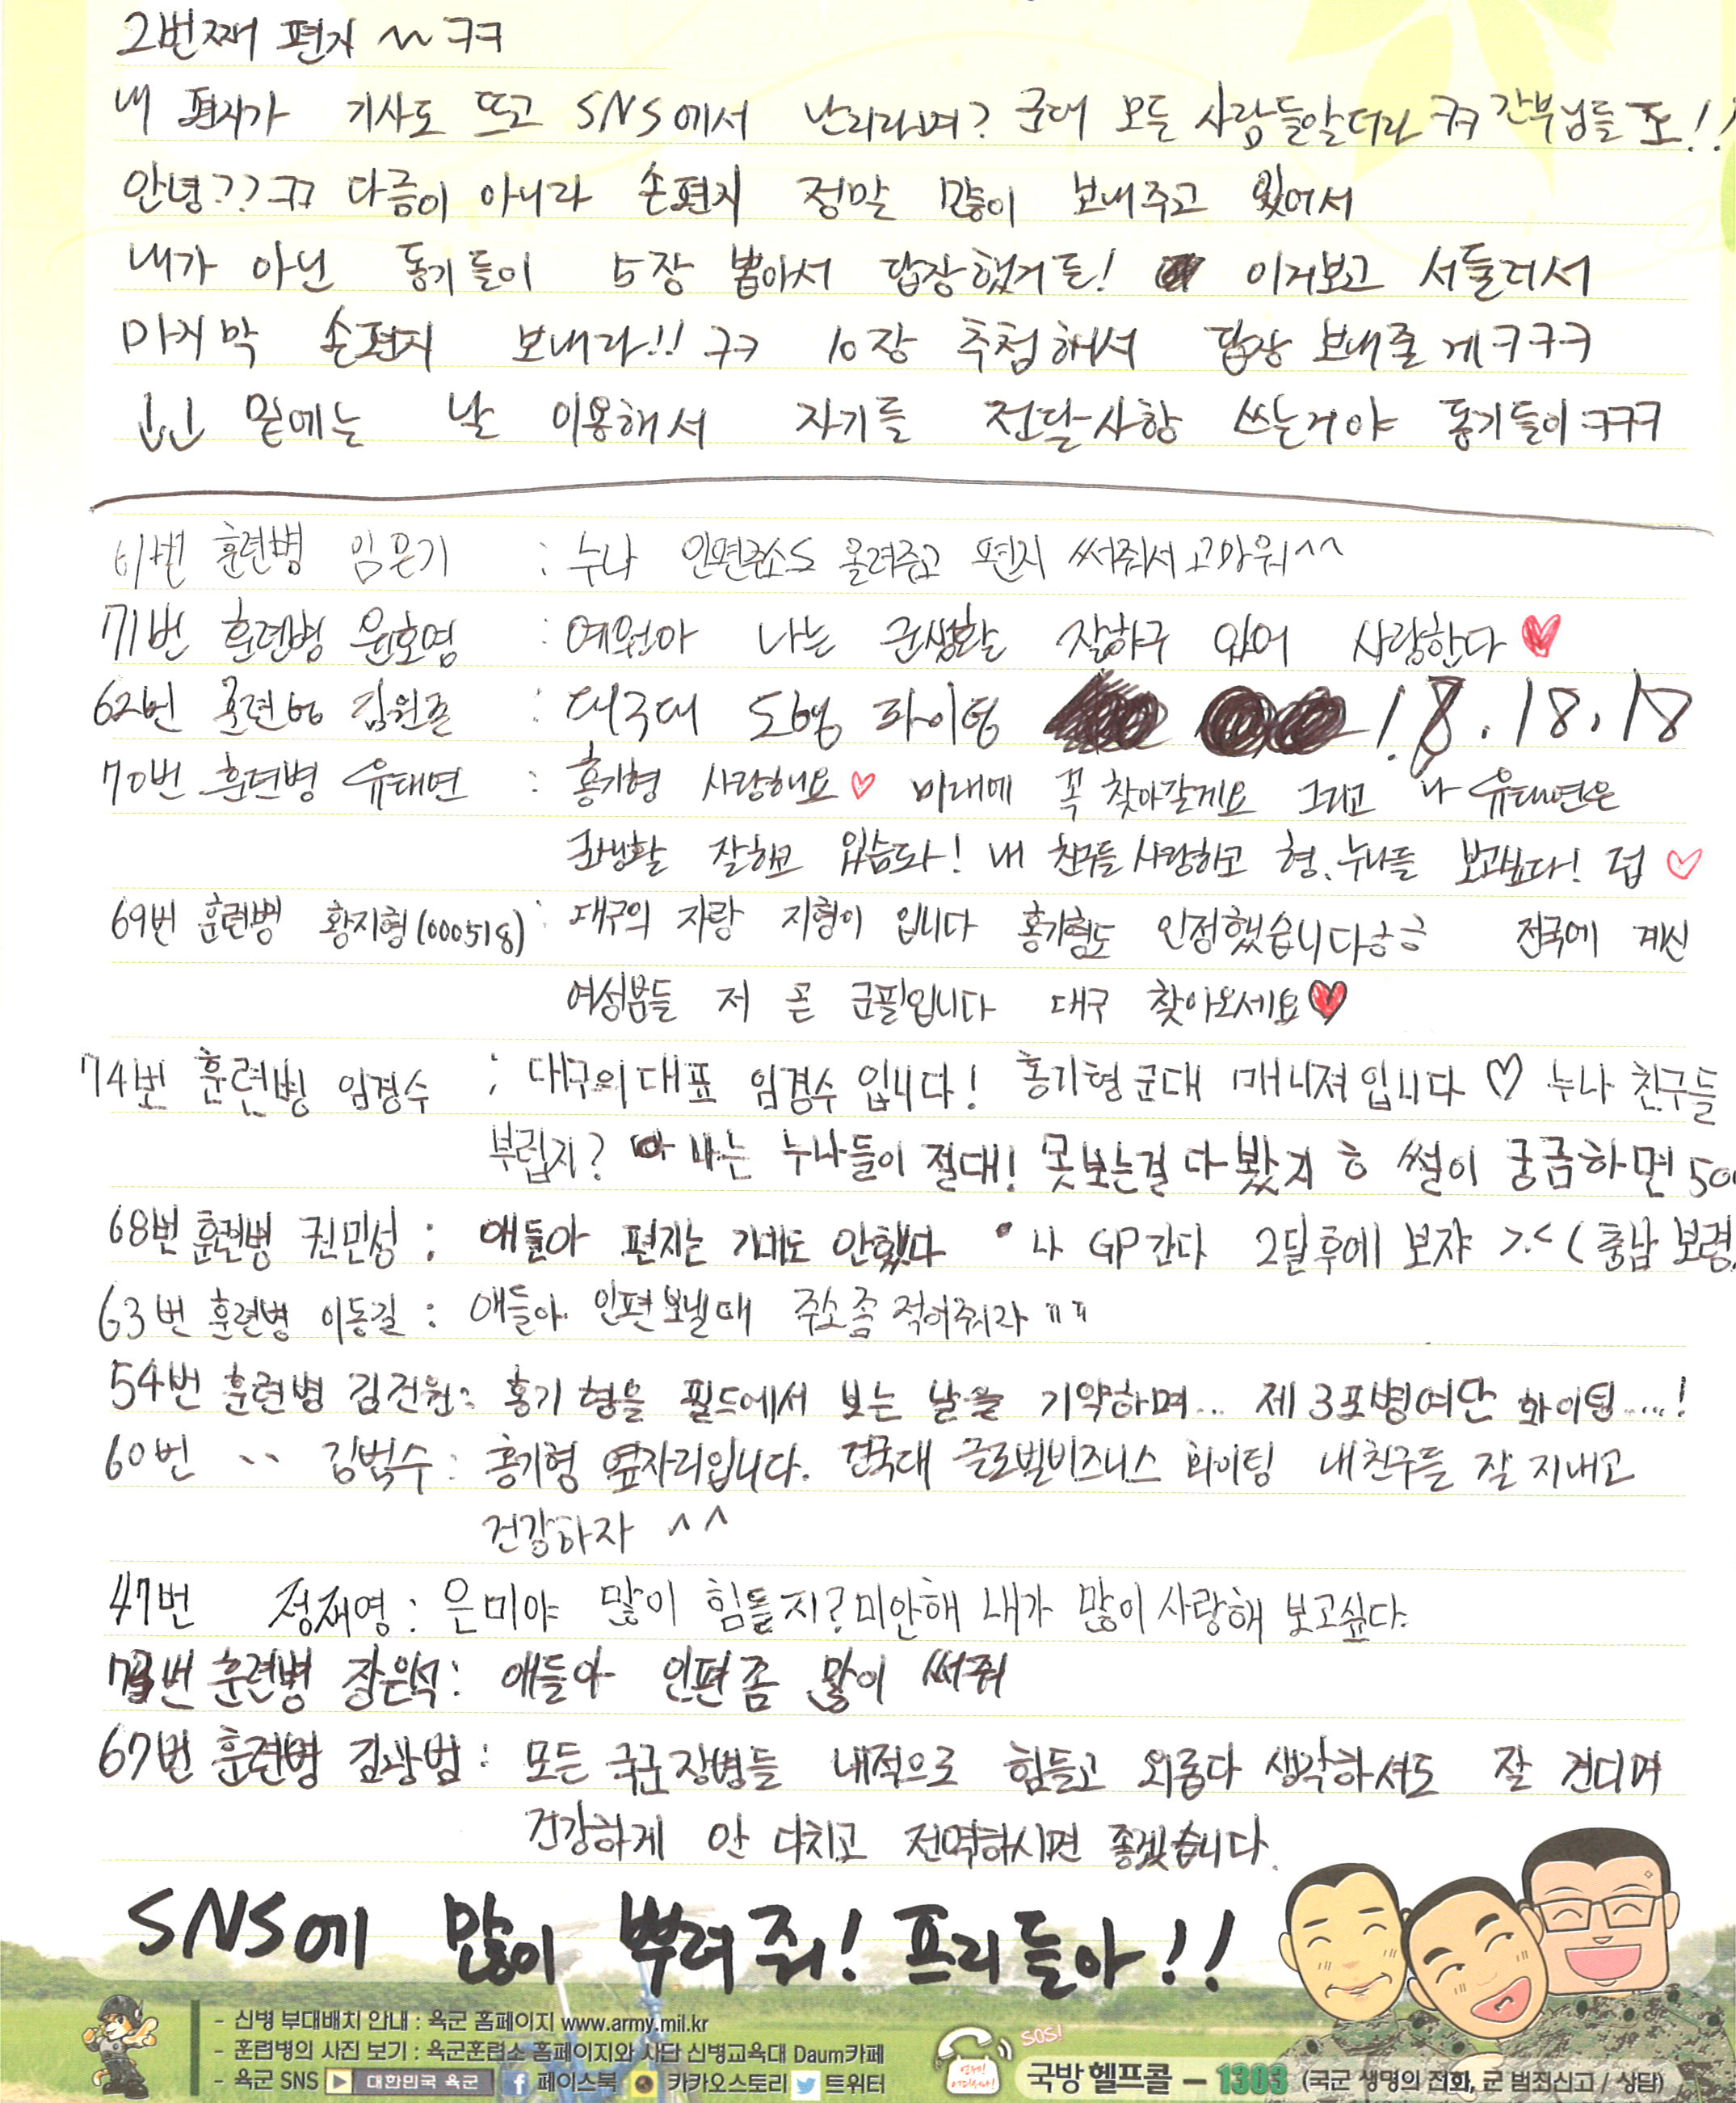 2번째 편지 ~ ㅋㅋ
내 편지가 기사도 뜨고 SNS에서 난리라며? 군대 모든 사람들알더라 ㅋㅋ 간부님들 도!!
안녕?? ㅋㅋ 다름이 아니라 손편지 정말 많이 보내주고 있어서
내가 아닌 동기들이 5장 뽑아서 답장했거든! 이거보고 서둘러서
마지막 손편지 보내라!! ㅋㅋ 10장 추첨해서 답장 보내줄게ㅋㅋㅋ
↓↓ 밑에는 날 이용해서 자기들 전달사항 쓰는거야 동기들이 ㅋㅋㅋ
훈련병 임은기 : 누나 인편주소 올려주고 편지 써줘서 고마워^^
71번 훈련병 윤호영 : 예원아 나는 군생활 잘하구 있어 사랑한다 ♥
62번 훈련병 김원준 : 화이팅 !8.18.18
70번 훈련병 유태연 : 홍기형 사랑해요♡ 미래에 꼭 찾아갈게요 그리고 나 유태연은
군생활 잘하고 있습니다! 내 친구들 사랑하고 형.누나들 보고싶다! 덥 ♡
69번 훈련병 황지형(000518) : 대구의 자랑 지형이 입니다 홍기형도 인정했습니다ㅎㅎ 전국에 계신
여성분들 저 곧 군필입니다 대구 찾아오세요♥
74번 훈련병 임경수 : 대구의대표 임경수입니다! 홍기형군대 매니져입니다 ♡ 누나 친구들
부럽지? 나는 누나들이 절대! 못보는걸 다봤지 ㅎ 썰이 궁금하면 500
68번 훈련병 권민성 : 애들아 편지는 기대도 안했다 나 GP간다 2달후에 보쟈 >.< (충남 보령
63번 훈련병 이동길 : 애들아 인편보낼때 주소좀 적어줘라 ㅠㅠ
54번 훈련병 김건원 : 홍기형을 필드에서 보는 날을 기약하며... 제3포병여단 화이팅....!
60번 〃 김범수 : 홍기형 옆자리입니다. 건국대 글로벌비즈니스 화이팅 내친구들 잘 지내고
건강하자 ^^
47번 정재영 : 은미야 많이 힘들지? 미안해 내가 많이 사랑해 보고싶다.
번 훈련병 장은석 : 애들아 인편좀 많이 써줘
67번 훈련병 김광범 : 모든 국군장병들 내적으로 힘들고 외롭다 생각하셔도 잘 견디며
건강하게 안 다치고 전역하시면 좋겠습니다.
SNS에 많이 뿌려줘! 프리들아!!
- 신병 부대배치 안내 : 육군 홈페이지 www.army.mil.kr
- 훈련병의 사진 보기 : 육군훈련소 홈페이지와 사단 신병교육대 Daum카페
- 육군 SNS 대한민국 육군 페이스북 카카오스토리 트위터
SOS!
언제! 어디서나!
국방헬프콜 – 1303 (국군 생명의 전화, 군 범죄신고 / 상담)